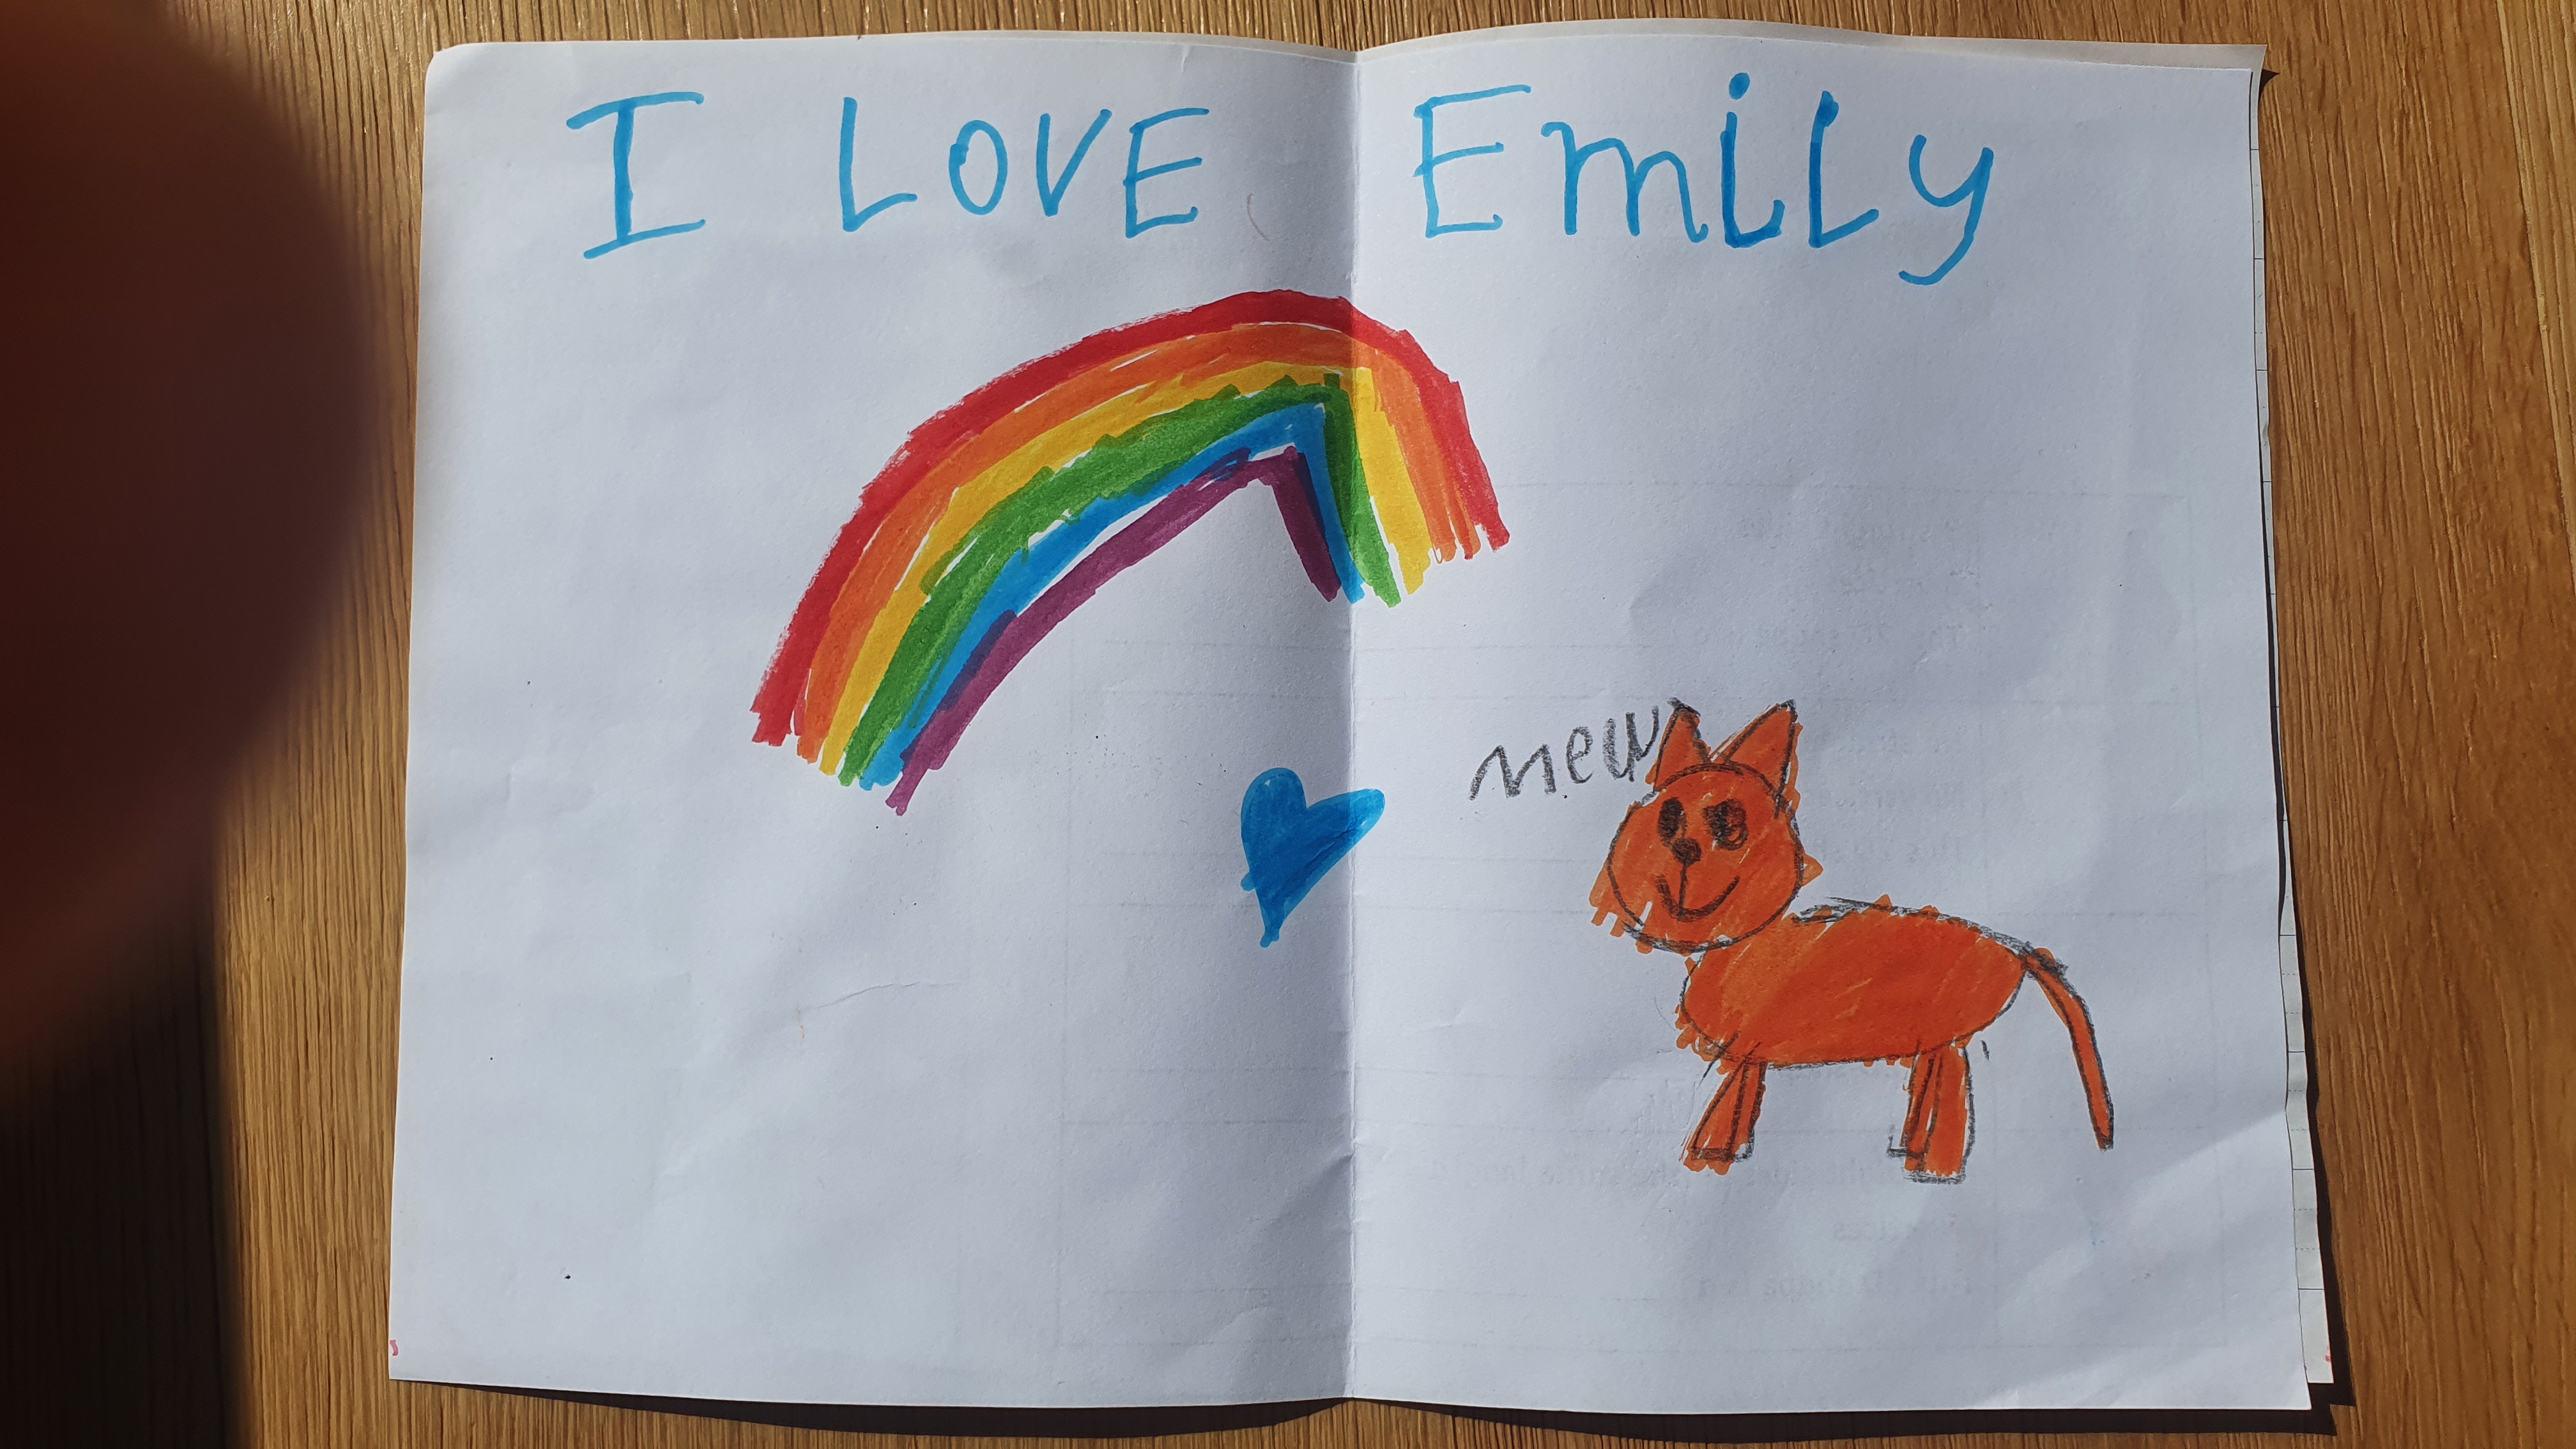 I LOVE Emily
mew